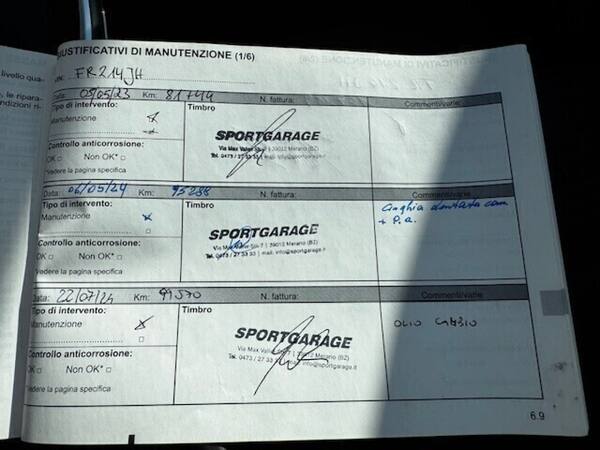 USTIFICATIVI DI MANUTENZIONE (1/6)
VIN: FR214JH
Data: 05/05/23 Km: 81744 N. fattura: Commenti/varie:
Tipo di intervento: Timbro
Manutenzione
SPORTGARAGE
Via Max Valier Str. 7 | 39012 Merano (BZ)
Tel. 0473 / 27 33 33 | mail: info@sportgarage.it
Controllo anticorrosione:
OK □ Non OK* □
*Vedere la pagina specifica
Data: 06/05/24 Km: 95288 N. fattura: Commenti/varie:
Tipo di intervento: Timbro Cinghia dentata com
Manutenzione + P.a.
SPORTGARAGE
Via Max Valier Str. 7 | 39012 Merano (BZ)
Tel. 0473 / 27 33 33 | mail: info@sportgarage.it
Controllo anticorrosione:
OK □ Non OK* □
*Vedere la pagina specifica
Data: 22/07/24 Km: 99570 N. fattura: Commenti/varie:
Tipo di intervento: Timbro
Manutenzione OLIO CAMBIO
SPORTGARAGE
Via Max Valier Str. 7 | 39012 Merano (BZ)
Tel. 0473 / 27 33 33 | mail: info@sportgarage.it
Controllo anticorrosione:
OK □ Non OK* □
*Vedere la pagina specifica
6.9